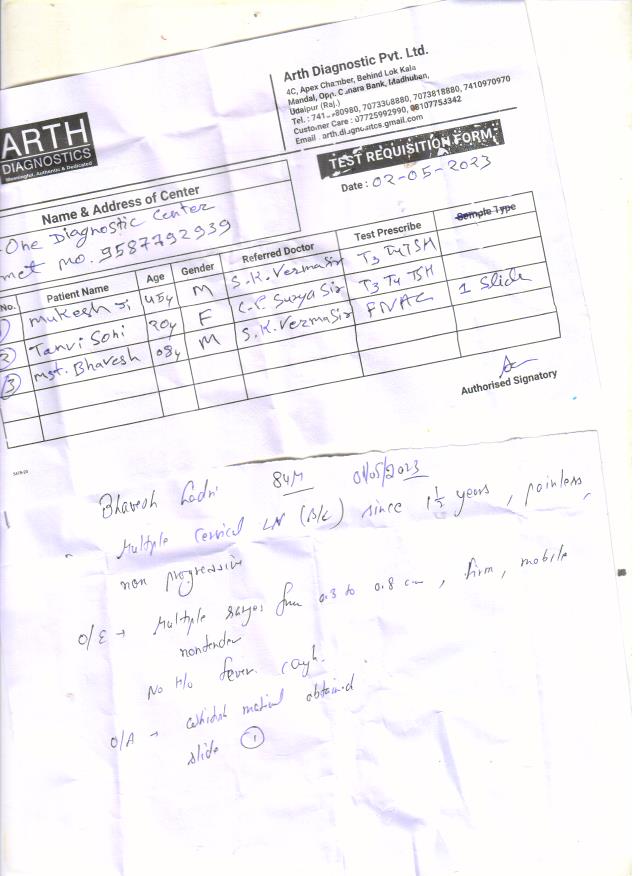 ARTH
DIAGNOSTICS
Meaningful, Authentic & Dedicated
Arth Diagnostic Pvt. Ltd.
4C, Apex Chamber, Behind Lok Kala
Mandal, Opp. Canara Bank, Madhuban,
Udaipur (Raj.)
Tel. : 741 80980, 7073308880, 7073818880, 7410970970
Customer Care : 07725992990, 08107753342
Email : arth.diagnostcs.gmail.com
TEST REQUISITION FORM
Date : 02-05-2023
Name & Address of Center
One Diagnostic Center
met mo. 9587792939
No. Patient Name Age Gender Referred Doctor Test Prescribe Semple Type
1 Mukesh Ji 45y M S.K. Verma Sir T3 T4 TSH
2 Tanvi Soni 20y F C.P. Surya Sir T3 T4 TSH
3 Mst. Bhavesh 08y M S.K. Verma Sir FNAC 1 Slide
Authorised Signatory
Bhavesh 8y/M 01/05/2023
Multiple Cervical LN (B/L) since 1½ years, painless,
non progressive
O/E → Multiple ranges from 0.3 to 0.8 cm, firm, mobile
nontender
No H/o fever, cough.
O/A → whitish material obtained
slide 1